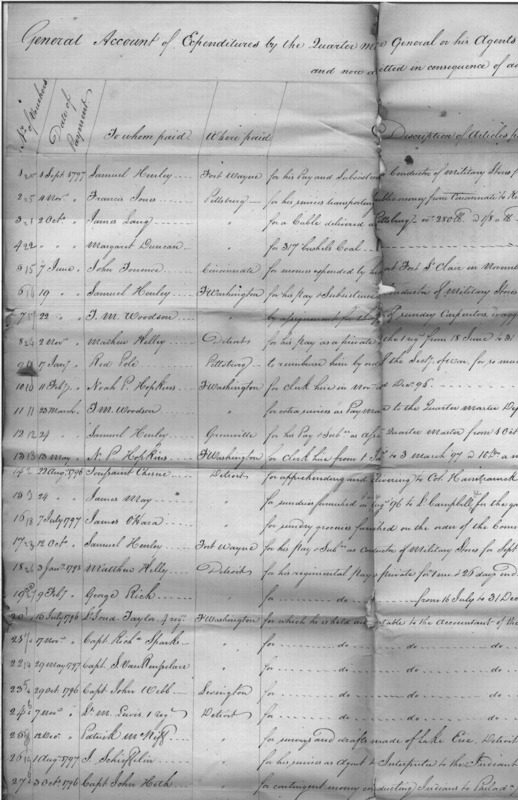 General Account of Expenditures by the Quarter Mas General or his Agents
and now a etted in consequence of
No. of Vouchers Date of Payment To whom paid Where paid Description of Articles
1 1 Sept 1797 Samuel Henley Fort Wayne for his Pay and Subsistence Conductor of Military Stores
2 4 Nov. " Francis Jones Pittsburg for his services transporting public money from Cincinnati to
3 2 Octr. " James Lang " for a Cable delivered at Pittsburg wt. 280 lb
4 " " Margaret Duncan " for 317 bushels Coal
5 7 June " John Cincinnati for monies expended by him at Fort St. Clair in
6 19 " " Samuel Henley F Washington for his pay & Subsistence Conductor of Military Stores
7 22 " " F. M. Woodson " of sundry Carpenters
8 2 Nov. " Mathew Kelley Detroit for his Pay as a private the 1 regt from 18 June to 31
9 17 Jany. " Red Pole Pittsburg to reimburse him by of the Secty. of war, for
10 11 Feby. " Noah P. Hopkins F Washington for Clerk hire in Nov. and Dec. 96
11 13 March " F. M. Woodson " for extra services as Pay Mas to the Quarter Master
12 24 " Samuel Henley Greenville for his Pay & Subs. as Quarter Master from
13 13 May " N. P. Hopkins F Washington for Clerk hire from 1 Jan to 3 March 97
14 Augt. 1796 Detroit for apprehending and delivering to Col. Hamtramck
15 24 " James May " for sundries furnished in Augt. 96 to D. Campbell, for the
16 7 July 1797 James O'Hara " for sundry groceries furnished on the order of the
17 12 Octr. " Samuel Henley Fort Wayne for his Pay & Subs. as Conductor of Military Stores for Sept
18 3 Jany. Matthew Kelly Detroit for his regimental pay private for 1 mo & 26 days
19 9 Feby. " George Rich " for do from 16 July to 31 Dec
20 16 July 1796 Taylor F Washington for which he is held accountable to the Accountant of the
21 7 Nov. " Capt. Richd. Sparks " for do do do
22 29 May 1797 Capt. S. Van Renselare " for do do do
23 29 Oct. 1796 Capt. John Webb Lexington for do do do
24 7 Nov. " Lt. M. Lewis 1 regt. Detroit for do do do
25 12 Dec. " Patrick McNiff " for surveys and drafts made of Lake Erie, Detroit
26 1 Augt. 1797 J. Schieffelin " for his services as Agent & Interpreter to the Indians
27 3 Octr. 1796 Capt. John Heth " for contingent money conducting Indians to Philada.